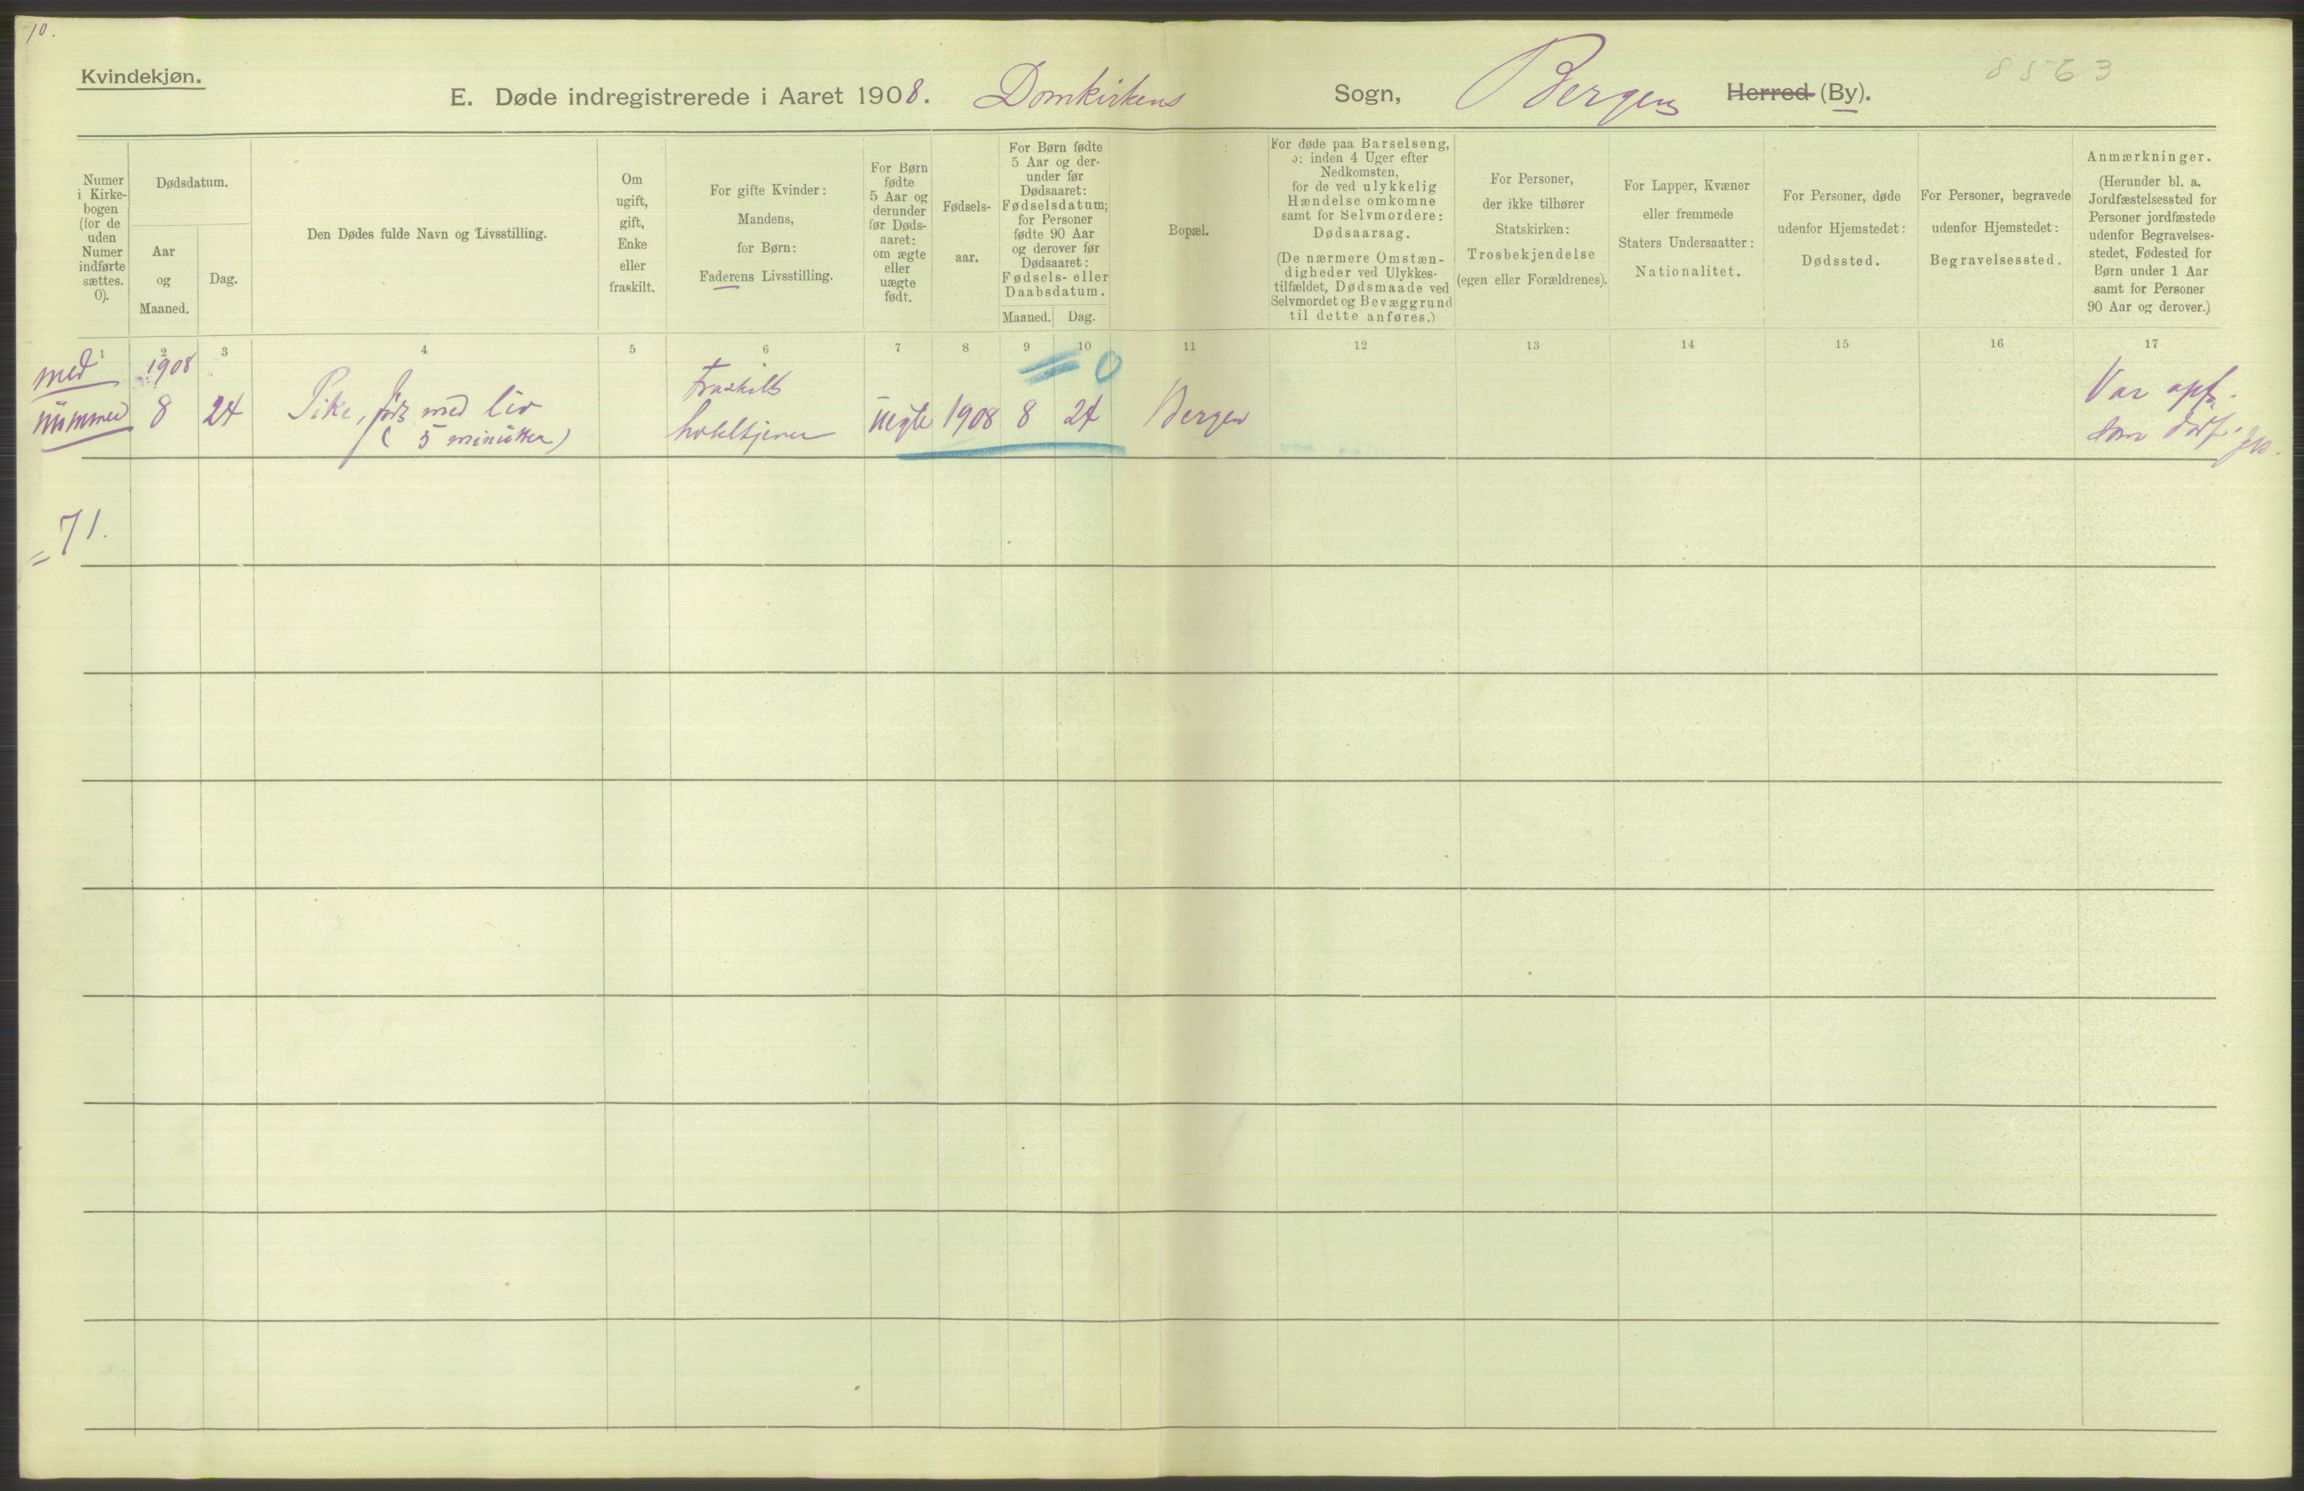 10.
Kvindekjøn.
E. Døde indregistrerede i Aaret 1908. Domkirkens Sogn, Bergens Herred (By).
8563
Numer
i Kirke-
bogen
(for de
uden
Numer
indførte
sættes.
0).
Dødsdatum.
Aar
og
Maaned.
Dag.
Den Dødes fulde Navn og Livsstilling.
Om
ugift,
gift,
Enke
eller
fraskilt.
For gifte Kvinder:
Mandens,
for Børn:
Faderens Livsstilling.
For Børn
fødte
5 Aar og
derunder
før Døds-
aaret:
om ægte
eller
uægte
født.
Fødsels-
aar.
For Børn fødte
5 Aar og der-
under før
Dødsaaret:
Fødselsdatum;
for Personer
fødte 90 Aar
og derover før
Dødsaaret:
Fødsels- eller
Daabsdatum.
Maaned. Dag.
Bopæl.
For døde paa Barselseng,
ɔ: inden 4 Uger efter
Nedkomsten,
for de ved ulykkelig
Hændelse omkomne
samt for Selvmordere:
Dødsaarsag.
(De nærmere Omstæn-
digheder ved Ulykkes-
tilfældet, Dødsmaade ved
Selvmordet og Bevæggrund
til dette anføres.)
For Personer,
der ikke tilhører
Statskirken:
Trosbekjendelse
(egen eller Forældrenes).
For Lapper, Kvæner
eller fremmede
Staters Undersaatter:
Nationalitet.
For Personer, døde
udenfor Hjemstedet:
Dødssted.
For Personer, begravede
udenfor Hjemstedet:
Begravelsessted.
Anmærkninger.
(Herunder bl. a.
Jordfæstelsessted for
Personer jordfæstede
udenfor Begravelses-
stedet, Fødested for
Børn under 1 Aar
samt for Personer
90 Aar og derover.)
1 2 3 4 5 6 7 8 9 10 11 12 13 14 15 16 17
med 1908 Fraskilt = 0 Var opf.
nummer 8 24 Pike, født med liv hoteltjener uegte 1908 8 24 Bergen som dødf.
( 5 minutter)
= 71.